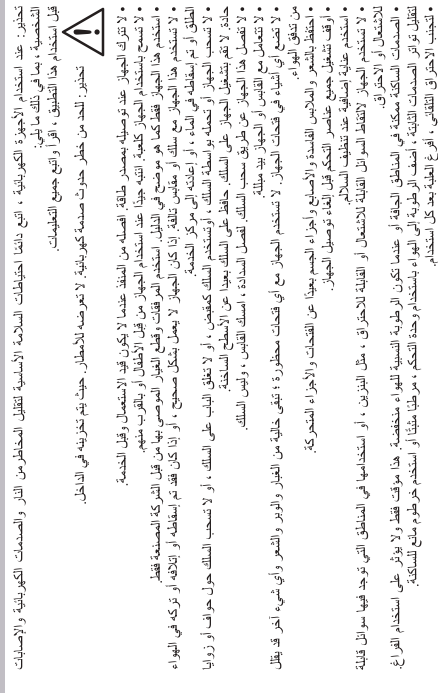 تحذير: عند استخدام الأجهزة الكهربائية ، اتبع دائمًا احتياطات السلامة الأساسية لتقليل المخاطر من النار والصدمات الكهربائية والإصابات
الشخصية ، بما في ذلك ما يلي:
قبل استخدام هذا التطبيق ، اقرأ واتبع جميع التعليمات.
تحذير: للحد من خطر حدوث صدمة كهربائية. لا تعرضه للأمطار. حيث يتم تخزينه في الداخل.
• لا تترك الجهاز عند توصيله بمصدر طاقة. افصله من المنفذ عندما لا يكون قيد الاستعمال وقبل الخدمة.
• لا تسمح باستخدام الجهاز كلعبة. انتبه جيدًا عند استخدام الجهاز من قبل الأطفال أو بالقرب منهم.
• استخدم هذا الجهاز فقط كما هو موضح في الدليل. ستخدم المرفقات وقطع الغيار الموصى بها من قبل الشركة المصنعة فقط.
• لا تستخدم هذا الجهاز مع سلك أو مقابس تالفة. إذا كان الجهاز لا يعمل بشكل صحيح ، أو إذا كان فقد تم إسقاطه أو إتلافه أو تركه في الهواء
الطلق أو تم إسقاطه في الماء ، أو إعادته إلى مركز الخدمة.
• لا تسحب الجهاز أو تحمله بواسطة السلك ، أو تستخدم السلك كمقبض ، أو لا تغلق الباب على السلك ، أو لا تسحب السلك حول حواف أو زوايا
حادة. لا تقم بتشغيل الجهاز على السلك. حافظ على السلك بعيدًا عن الأسطح الساخنة.
• لا تفصل هذا الجهاز عن طريق سحب السلك. لفصل السدادة ، امسك القابس ، وليس السلك.
• لا تتعامل مع القابس أو الجهاز بيد مبتلة.
• لا تضع أي أشياء في فتحات الجهاز. لا تستخدم الجهاز مع أي فتحات محظورة ؛ تبقى خالية من الغبار والوبر والشعر وأي شيء آخر قد يقلل
من تدفق الهواء.
• احتفظ بالشعر والملابس الفاسدة والأصابع وأجزاء الجسم بعيدًا عن الفتحات والأجزاء المتحركة.
• أوقف تشغيل جميع عناصر التحكم قبل إلغاء توصيل الجهاز.
• استخدم عناية إضافية عند تنظيف السلالم.
• لا تستخدم الجهاز لالتقاط السوائل القابلة للاشتعال أو القابلة للاحتراق ، مثل البنزين ، أو استخدامها في المناطق التي توجد فيها سوائل قابلة
للاشتعال أو الاحتراق.
• الصدمات الساكنة ممكنة في المناطق الجافة أو عندما تكون الرطوبة النسبية للهواء منخفضة. هذا مؤقت فقط ولا يؤثر على استخدام الفراغ.
لتقليل تواتر الصدمات الثابتة ، أضف الرطوبة إلى الهواء باستخدام وحدة التحكم ، مرطبًا مثبتًا أو استخدم خرطوم مانع للساكنة.
• لتجنب الاحتراق التلقائي ، أفرغ العلبة بعد كل استخدام.